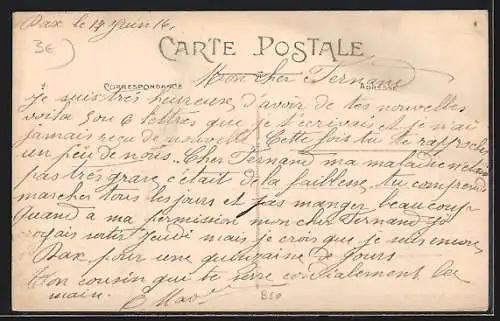 Dax le 14 Juin 16.
3E
CARTE POSTALE
CORRESPONDANCE
ADRESSE
Mon cher Fernand
Je suis très heureuse d'avoir de tes nouvelles
voila 5 ou 6 lettres que je t'écrivais et je n'ai
jamais reçu de nouvelle. Cette fois tu te rapproche
un peu de nous. Cher Fernand ma maladie n'était
pas très grave c'était de la faiblesse, tu comprends
marcher tous les jours et pas manger beaucoup
Quand a ma permission mon cher Fernand je
croyais sortir Jeudi mais je crois que je suis encore
Dax pour une quinzaine de jours
Ton cousin qui te serre cordialement la
main.
850